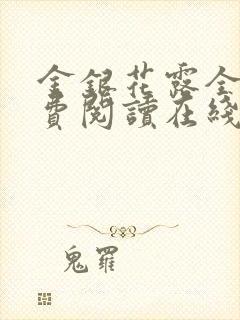 金銀花露全
費閱讀在綫
鬼羅